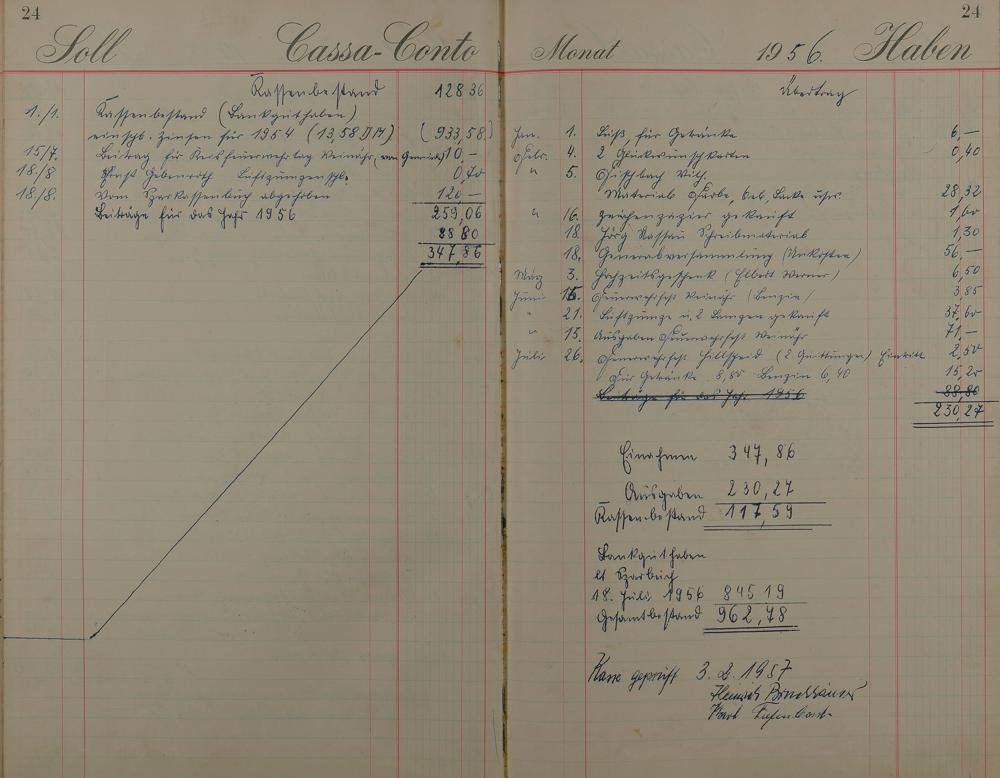 24
Soll Cassa-Conto
Kassenbestand 128 36
1./1. Kassenbestand (Bankguthaben)
einschl. Zinsen für 1954 (13,58 DM) (933,58)
15/7. Beitrag für Kreisfeuerwehrtag Weinähr, von Gemeinde 10,-
18./8 Ernst Gebenroth Luftzungenschl. 0 70
18./8. vom Sparkassenbuch abgehoben 120 —
Beiträge für das Jahr 1956 259,06
88 80
347,86
24
Monat 1956. Haben
Übertrag
Jan. 1. Süß, für Getränke 6,—
Febr. 4. 2 Glückwunschkarten 0,40
" 5. Fischbach Wilh.
Material Farbe, Lacke usw. 28,32
" 16. Zeichenpapier gekauft 1,60
18. Jörg Nassau Schreibmaterial 1,30
18. Generalversammlung (Unkosten) 56,—
März 3. Hochzeitsgeschenk (Elbert Werner) 6,50
Juni 15. Feuerwehrfest Weinähr (Benzin) 3,85
" 21. Luftzünge u. 2 Lampen gekauft 37,60
" 15. Ausgaben Feuerwehrfest Weinähr 71,—
Juli 26. Feuerwehrfest Hillscheid (2 Quittungen) Eintritt 2,50
Für Getränke 8,80 Benzin 6,40 15,20
Beiträge für das Jahr 1956 88,80
230,27
Einnahmen 347,86
Ausgaben 230,27
Kassenbestand 117,59
Bankguthaben
lt Sparbuch
18. Juli 1956 845 19
Gesamtbestand 962,78
Kasse geprüft 3.2.1957
Heinrich
Karl